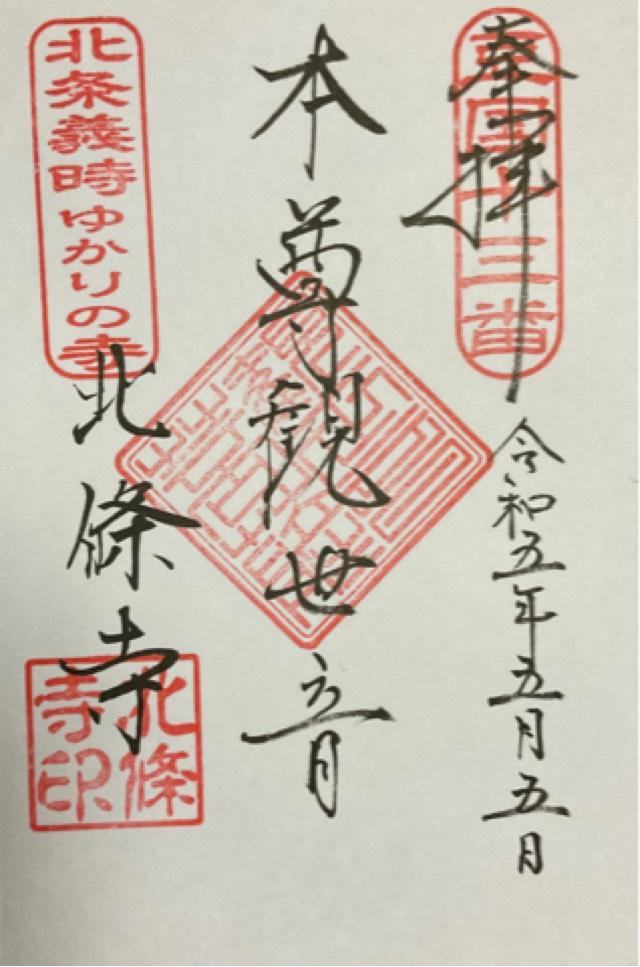 奉拝
豆国十三番
令和五年五月五日
本尊観世音
北条義時ゆかりの寺
北條寺
北條
寺印